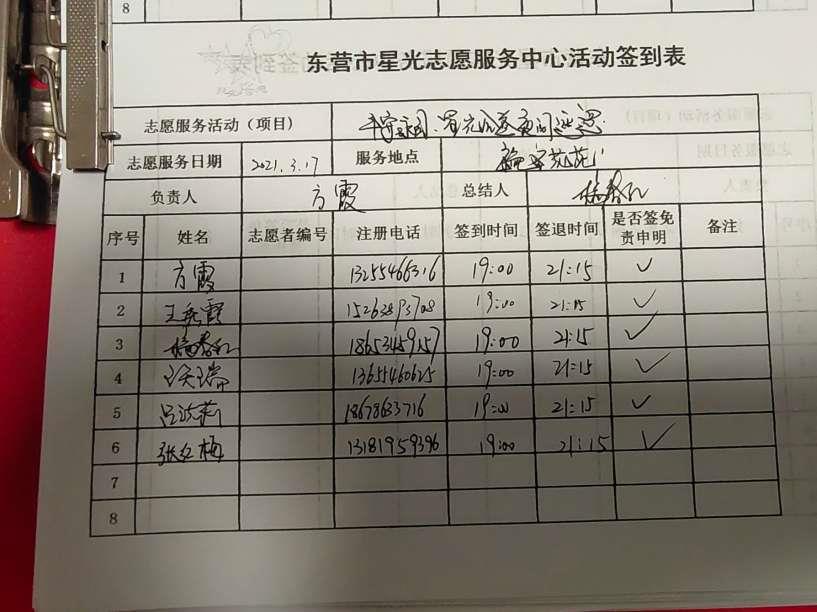 8
东营市星光志愿服务中心活动签到表
志愿服务活动（项目）
志愿服务日期 2021.3.17 服务地点
负责人 方霞 总结人
序号 姓名 志愿者编号 注册电话 签到时间 签退时间 是否签免责申明 备注
1 方霞 13255466316 19:00 21:15 ✓
2 15263893708 19:00 21:15 ✓
3 18653459157 19:00 21:15 ✓
4 13655460625 19:00 21:15 ✓
5 18678633716 19:00 21:15 ✓
6 张红梅 13181959396 19:00 21:15 ✓
7
8